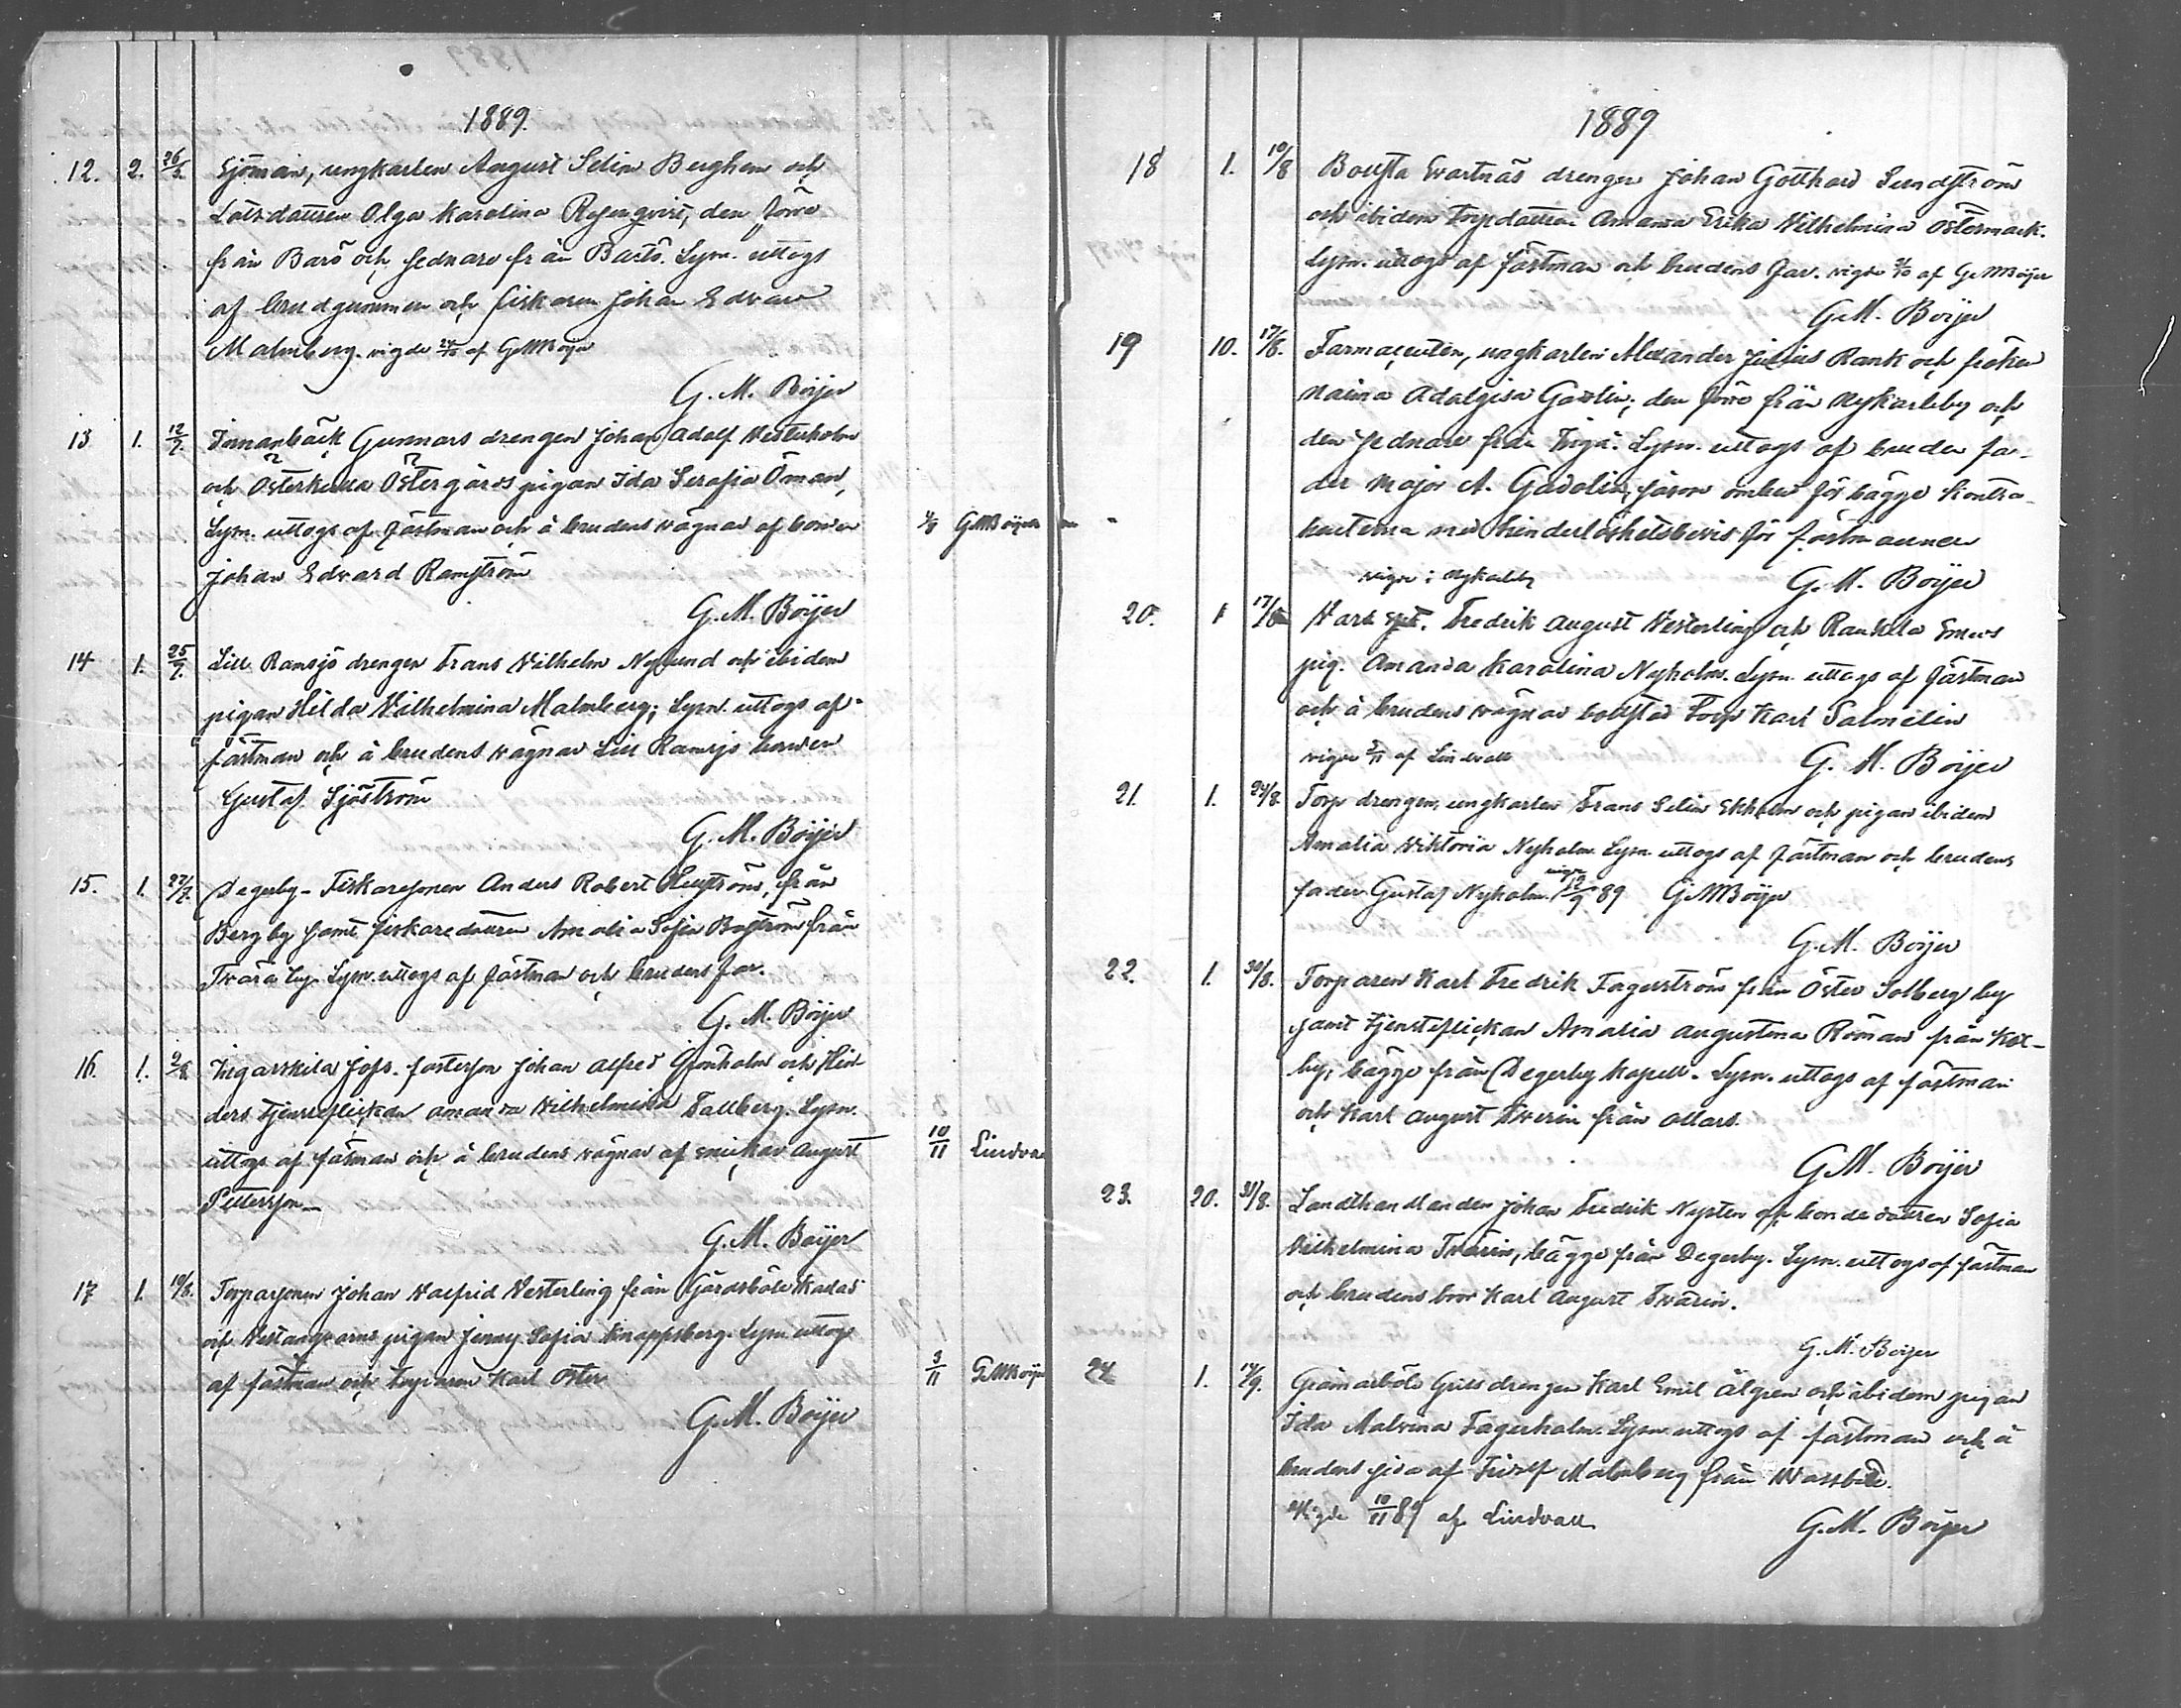 1889.
12. 2. 26/5. Sjöman, ungkarlen August Selim Berghem och
Lotsdottren Olga Karolina Rosenqvist, den förre
från Barö och sednare från Barö. Lysn. uttogs
af brudgummen och fiskaren Johan Edvard
Malmberg. vigde af GMBöijer
G. M. Böijer
13 1. 12/7. Innanbäck Gunnars drengen Johan Adolf Westerholm
och Österkulla Östergårds pigan Ida Serafia Öman,
Lysn. uttogs af fästman och å brudens vägnar af bonden 1/9 GMBöijer
Johan Edvard Ramström
G. M. Böijer
14 1. 25/7. Lill Ramsjö drengen Frans Vilhelm Nylund och ibidem
pigan Hilda Vilhelmina Malmberg; Lysn. uttogs af
fästman och å brudens vägnar Lill Ramsjö bonden
Gustaf Sjöström
G. M. Böijer
15. 1. 27/7. Degerby-Fiskaresonen Anders Robert från
Bergby samt fiskaredottren Amalia Sofia Boström från
Lysn. uttogs af fästman och brudens far.
G. M. Böijer
16. 1. 2/8 Ingarskila Jofs. fosterson Johan Alfred Grönholm och
ders tjensteflickan Amanda Vilhelmina Fallberg. Lysn.
uttogs af fästman och å brudens vägnar af snickar August 10/11 Lindvall
Pettersson
G. M. Böijer
17 1. 10/8. Torparsonen Johan Valfrid Westerling från Gårdsböle
och pigan Jenny Sofia Knappsberg. Lysn uttogs
af fästman och torparen Karl Öster 3/11 GMBöijer
G. M. Böijer
1889
18 1. 10/8 Bollsta Evartnäs drengen Johan Gotthard Sundström
och ibidem Torpdottren Amanda Erika Vilhelmina Östermark.
Lysn. uttogs af fästman och brudens far. vigde af GMBöijer
G. M. Böijer
19 10. 17/8. Farmaceuten, ungkarlen Alexander Julius Rank och fröken
Naima Adalgisa Gadolin; den förre från Nykarleby och
den sednare från Ingå. Lysn. uttogs af bruden fa-
der Major A. Gadolin, såsom ombud för bägge kontra-
henterna med hinderlöshetsbevis för fästmannen
vigde i Nykarleby
G. M. Böijer
20. 1 17/8 Fredrik August Westerling och Rankila
pig. Amanda Karolina Nyholm. Lysn. uttogs af fästman
och å brudens vägnar bollstad Torp Karl Salmelin
vigde af Lindvall
G. M. Böijer
21. 1. 24/8. Torp drengen, ungkarlen Frans Selim Ekholm och pigan ibidem
Amalia Viktoria Nyholm. Lysn. uttogs af fästman och brudens
fader Gustaf Nyholm. vigde 89 GMBöijer
G. M. Böijer
22. 1. 30/8. Torparen Karl Fredrik Fagerström från Öster Solberg by
samt tjensteflickan Amalia Augustina Röman från
by, bägge från Degerby Kapell. Lysn. uttogs af fästman
och Karl August Tverin från Ollars.
G. M. Böijer
23. 20. 31/8. Landthandlanden Johan Fredrik Nysten och bondedottren Sofia
Vilhelmina Tverin, bägge från Degerby. Lysn. uttogs af fästman
och brudens bror Karl August Tverin.
G. M. Böijer
24 1. 14/9. Gråmarböle Grills drengen Karl Emil Älgren och ibidem pigan
Ida Malvina Fagerholm. Lysn uttogs af fästman och å
brudens sida af Malmberg från
Vigde 10/11 89 af Lindvall
G. M. Böijer